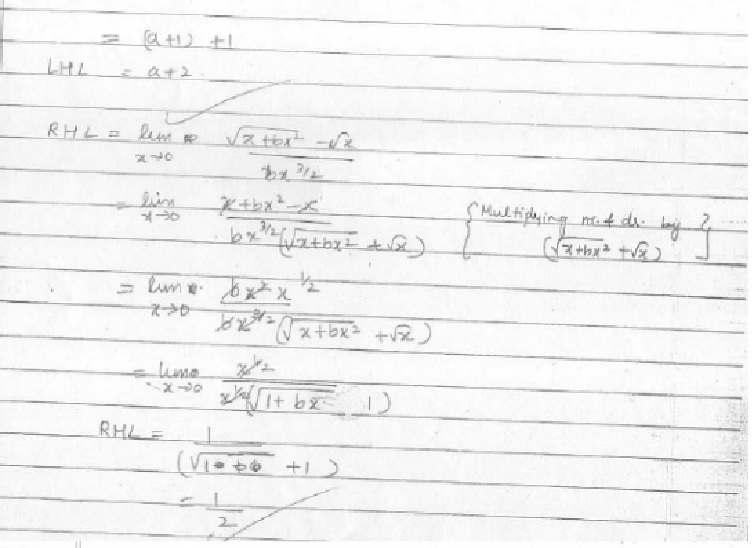 = (a+1) +1
LHL = a+2
RHL = lim x→0 (√(x+bx²) - √x) / (bx^(3/2))
= lim x→0 (x+bx² - x) / (bx^(3/2) (√(x+bx²) + √x)) { Multiplying n. & dr. by (√(x+bx²) + √x) }
= lim x→0 (bx² x^(1/2)) / (bx^(3/2) (√(x+bx²) + √x))
= lim x→0 x^(1/2) / (x^(1/2) (√(1+bx) 1))
RHL = 1 / (√(1 + b0) + 1)
= 1/2